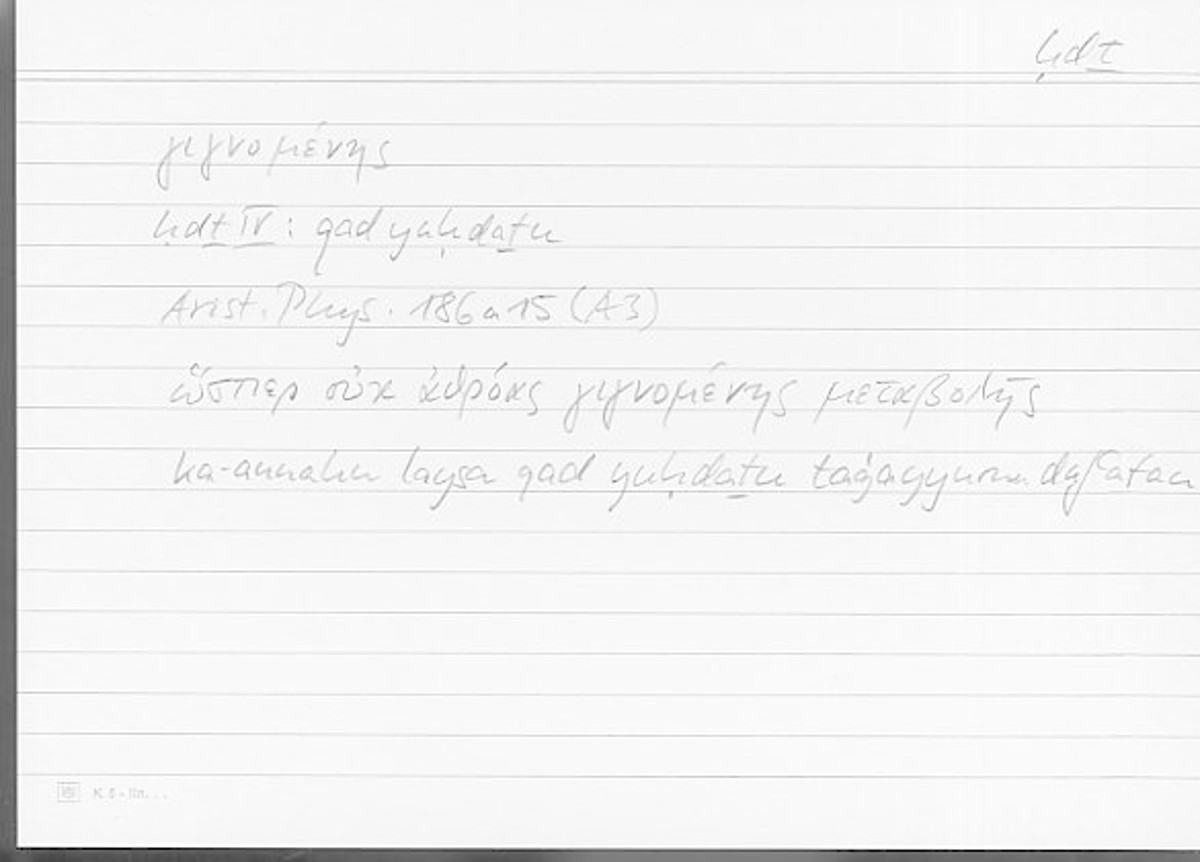 ḥdṯ
γιγνομένης
ḥdṯ IV: qad yuḥdaṯu
Arist. Phys. 186a15 (A3)
ὥσπερ οὐκ ἀθρόας γιγνομένης μεταβολῆς
ka-annahu laysa qad yuḥdaṯu taġayyurun dufʿatan